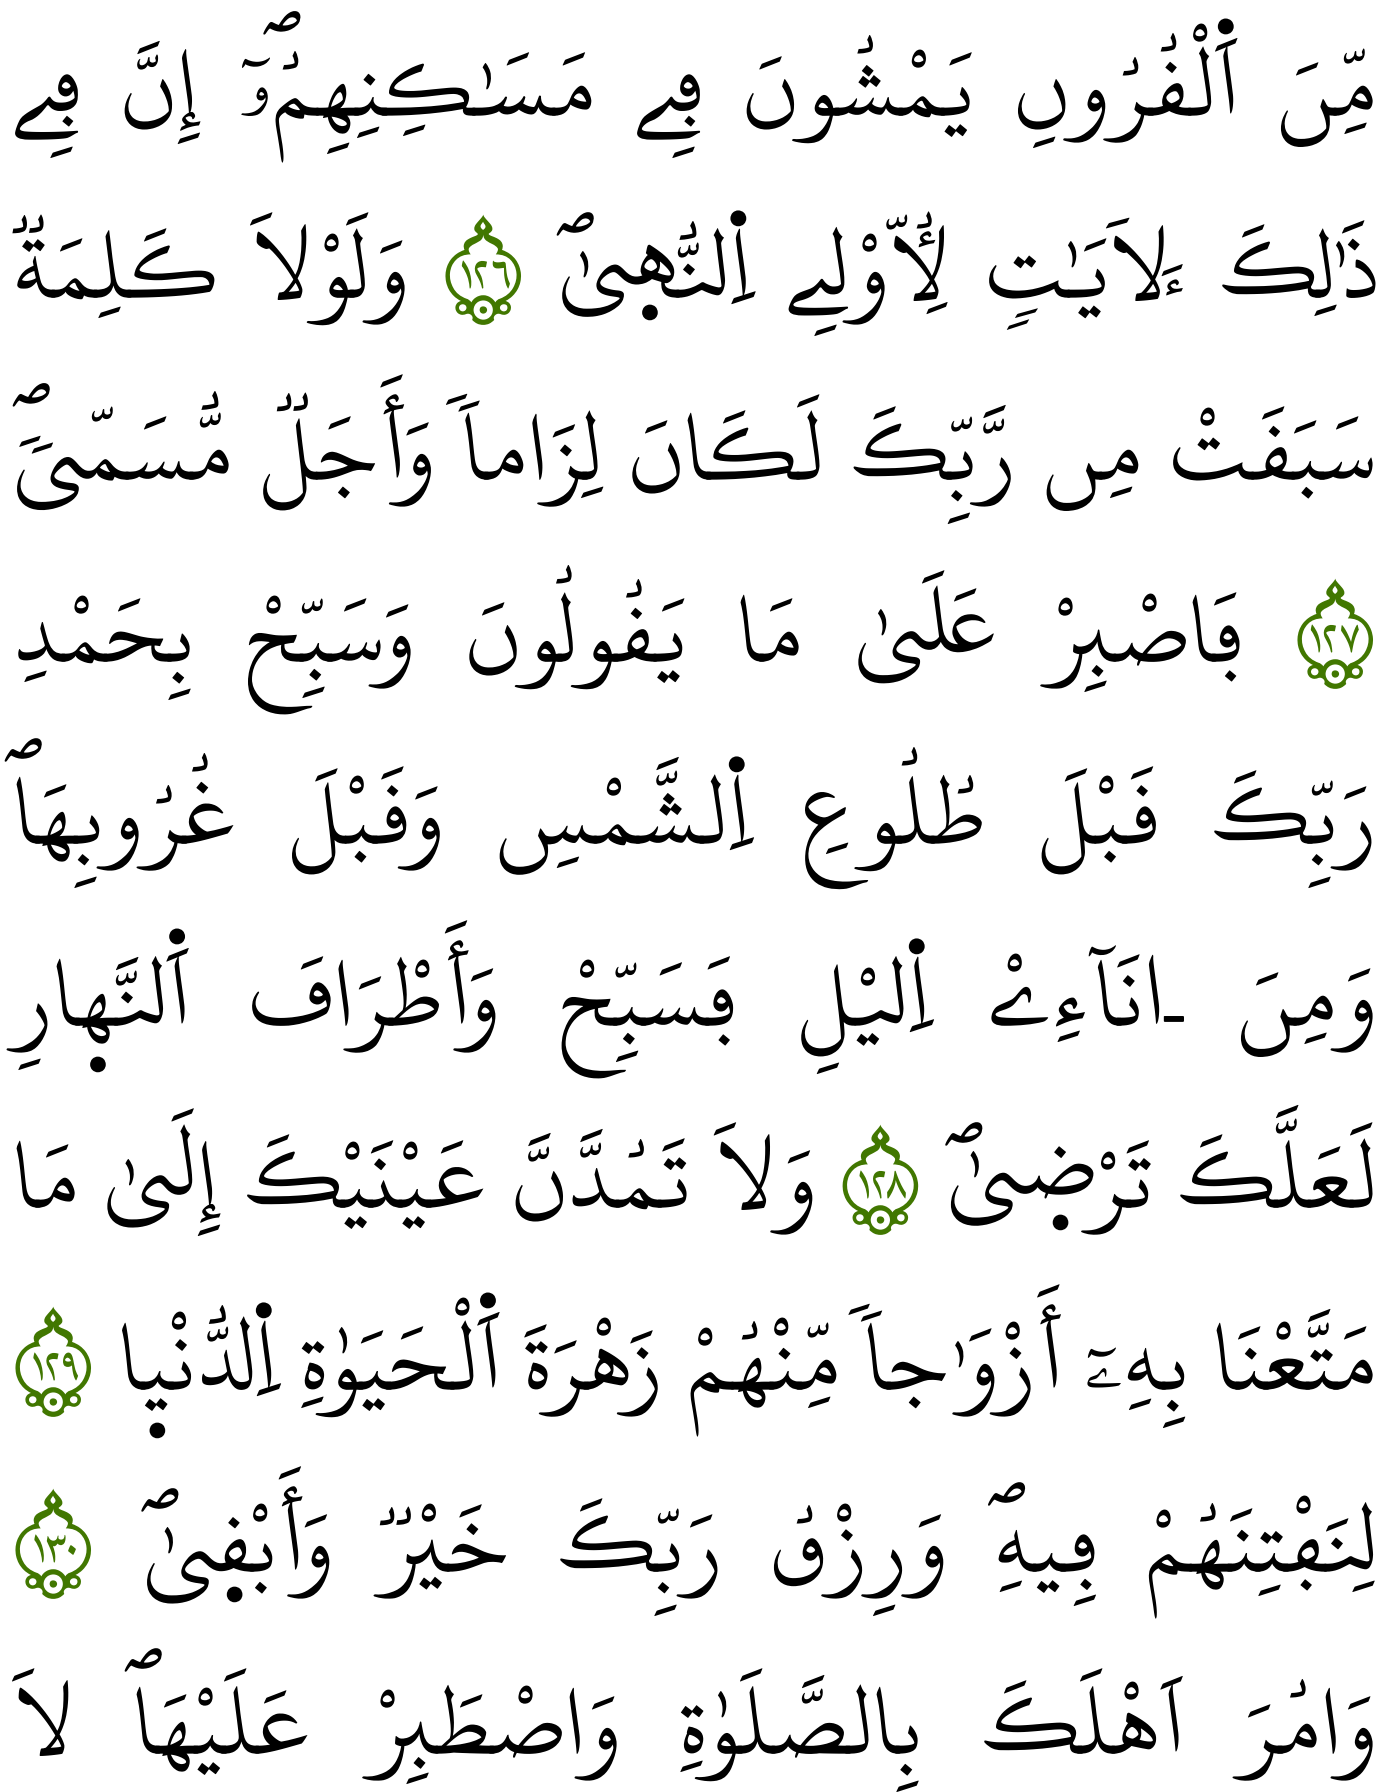 مِّنَ اَ۬لْقُرُونِ يَمْشُونَ فِے مَسَٰكِنِهِمُۥٓۖ إِنَّ فِے
ذَٰلِكَ ءَلَايَٰتٖ لِّأُوْلِے اِ۬لنُّه۪ىٰۖ ١٢٦ وَلَوْلَا كَلِمَةٞ
سَبَقَتْ مِن رَّبِّكَ لَكَانَ لِزَاماٗ وَأَجَلٞ مُّسَمّىٗۖ
١٢٧ فَاصْبِرْ عَلَىٰ مَا يَقُولُونَ وَسَبِّحْ بِحَمْدِ
رَبِّكَ قَبْلَ طُلُوعِ اِ۬لشَّمْسِ وَقَبْلَ غُرُوبِهَاۖ
وَمِنَ ـانَآءِےْ اِ۬ليْلِ فَسَبِّحْ وَأَطْرَافَ اَ۬لنَّه۪ارِ
لَعَلَّكَ تَرْض۪ىٰۖ ١٢٨ وَلَا تَمُدَّنَّ عَيْنَيْكَ إِلَىٰ مَا
مَتَّعْنَا بِهِۦٓ أَزْوَٰجاٗ مِّنْهُمْ زَهْرَةَ اَ۬لْحَيَوٰةِ اِ۬لدُّنْي۪ا ١٢٩
لِنَفْتِنَهُمْ فِيهِۖ وَرِزْقُ رَبِّكَ خَيْرٞ وَأَبْق۪ىٰۖ ١٣٠
وَامُرَ اَهْلَكَ بِالصَّلَوٰةِ وَاصْطَبِرْ عَلَيْهَاۖ لَا